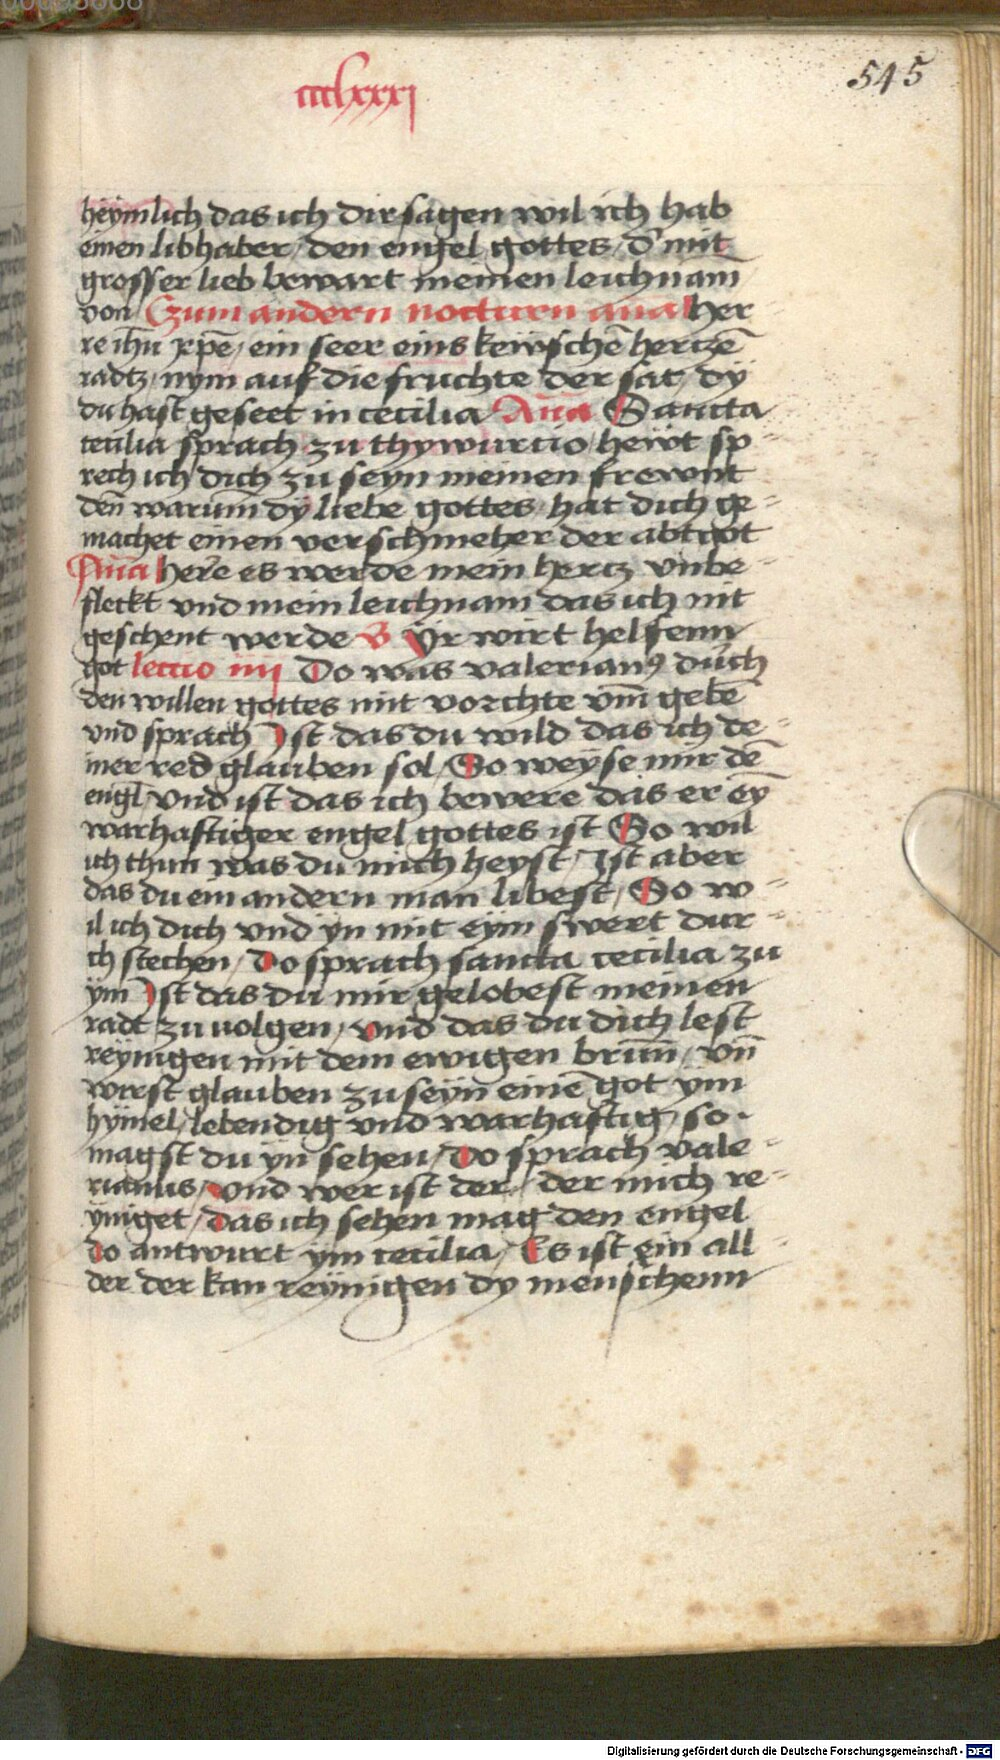 00033008
cccclxxxj
545
heÿmlich das ich dir sagen wil ich hab
einen libhaber / den engel gottes / d' mit
grosser lieb bewart meinen leichnam̄
von Czum andern nocturn an̄a her
re ih̄u xp̄e / ein seer eins keẅschē hertzē
radtz / nym auf die fruchte der sat / dÿ
du hast geseet in cecilia An̄a Sancta
cecilia sprach zu thywurcio / heẅt sp⸗
rech ich dich zu seyn meinen frewnt
den̄ warum̄ dÿ liebe gottes / hat dich ge⸗
machet einen verschmeher der abtgot
An̄a here es werde mein hertz vnbe⸗
fleckt vnd mein leichnam das ich nit
geschent werde V Ÿr wirt helfenn
got lectio iiij Do was valerianꝰ durch
den willen gottes mit vorchte vm̄ gebē
vnd sprach Ist das du wild das ich de⸗
iner red glauben sol / So weÿse mir dē
engl vnd ist das ich bewere das er eÿ
warhaftiger engel gottes ist So wil
ich thun was du mich heyst / Ist aber
das du ein andern man libest / So w⸗
il ich dich vnd ÿn mit eÿm swert dur⸗
ch stechen / Do sprach sancta cecilia zu
ÿm Ist das du mir gelobest meinen
radt zu uolgen / vnd das du dich lest
reÿnigen mit dem ewigen brun̄ / vn̄
wirst glauben zu seyn einē got ÿm
hÿmel / lebendig vnd warhaftig / so
magst du ÿn sehen / Do sprach vale⸗
rianus / vnd wer ist der / der mich re⸗
ÿniget / das ich sehen mag den engel
do antwurt ÿm cecilia / Es ist ein all⸗
der der kan reÿnigen dy menschenn
Digitalisierung gefördert durch die Deutsche Forschungsgemeinschaft - DFG